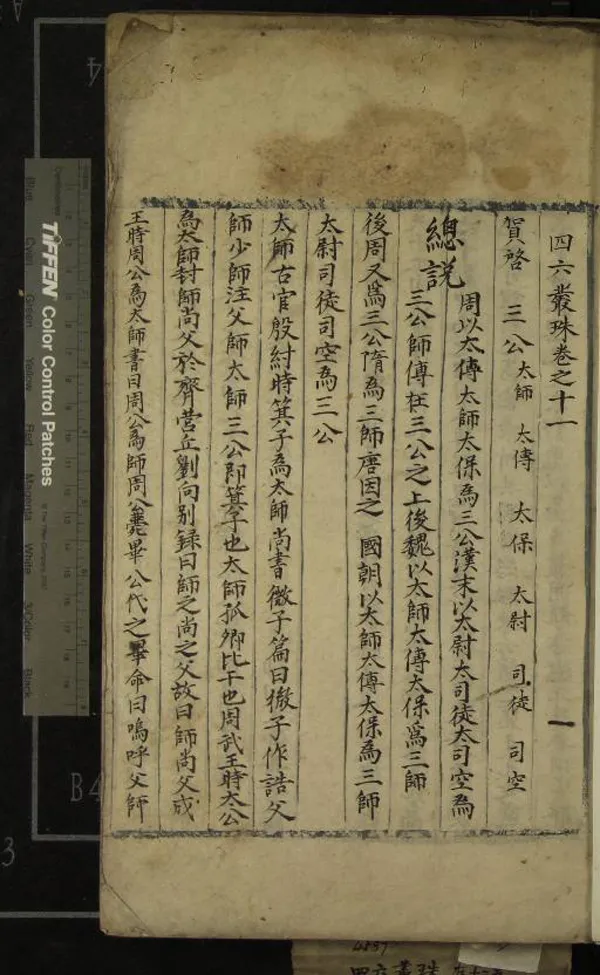 四六叢珠卷之十一
一
賀啓 三公 太師 太傅 太保 太尉 司徒 司空
總説
周以太傅太師太保為三公漢末以太尉太司徒太司空為
三公師傅在三公之上後魏以太師太傅太保爲三師
後周又爲三公隋為三師唐因之 國朝以太師太傅太保為三師
太尉司徒司空為三公
太師古官殷紂時箕子為太師尚書微子篇曰微子作誥父
師少師注父師太師三公即箕子也太師孤卿比干也周武王時太公
為太師封師尚父於齊營丘劉向别録曰師之尚之父故曰師尚父成
王時周公為太師書曰周公為師周公薨畢公代之畢命曰嗚呼父師
TIFFEN Color Control Patches
Blue
Cyan
Green
Yellow
Red
Magenta
White
3/Color
Black
B4
4
3
4837